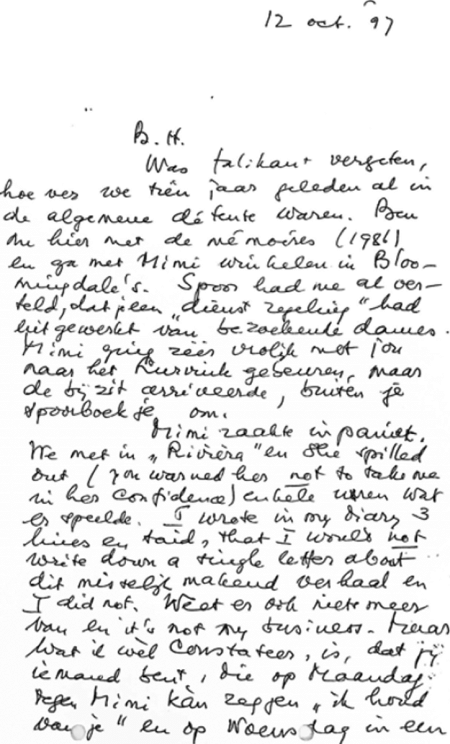 12 oct. '97
B. H.
Was falikant vergeten,
hoe ver we tien jaar geleden al in
de algemene détente waren. Ben
nu hier met de mémoires (1986)
en ga met Mimi winkelen in Bloo-
mingdale's. Spoor had me al ver-
teld, dat je een „dienst regeling" had
uitgewerkt van bezoekende dames.
Mimi ging zéér vrolijk met jou
naar het gebeuren, maar
de bijzit arriveerde, buiten je
spoorboekje om.
Mimi raakte in paniek.
We met in „Rivièra" en she spilled
out (you warned her not to take me
in her confidence) enkele uren wat
er speelde. I wrote in my diary 3
lines en said, that I would not
write down a single letter about
dit misselijk makend verhaal en
I did not. Weet er ook niets meer
van en it's not my business. Maar
wat ik wel constateer, is, dat jij
iemand bent, die op Maandag
tegen Mimi kàn zeggen „ik houd
van je" en op Woensdag in een